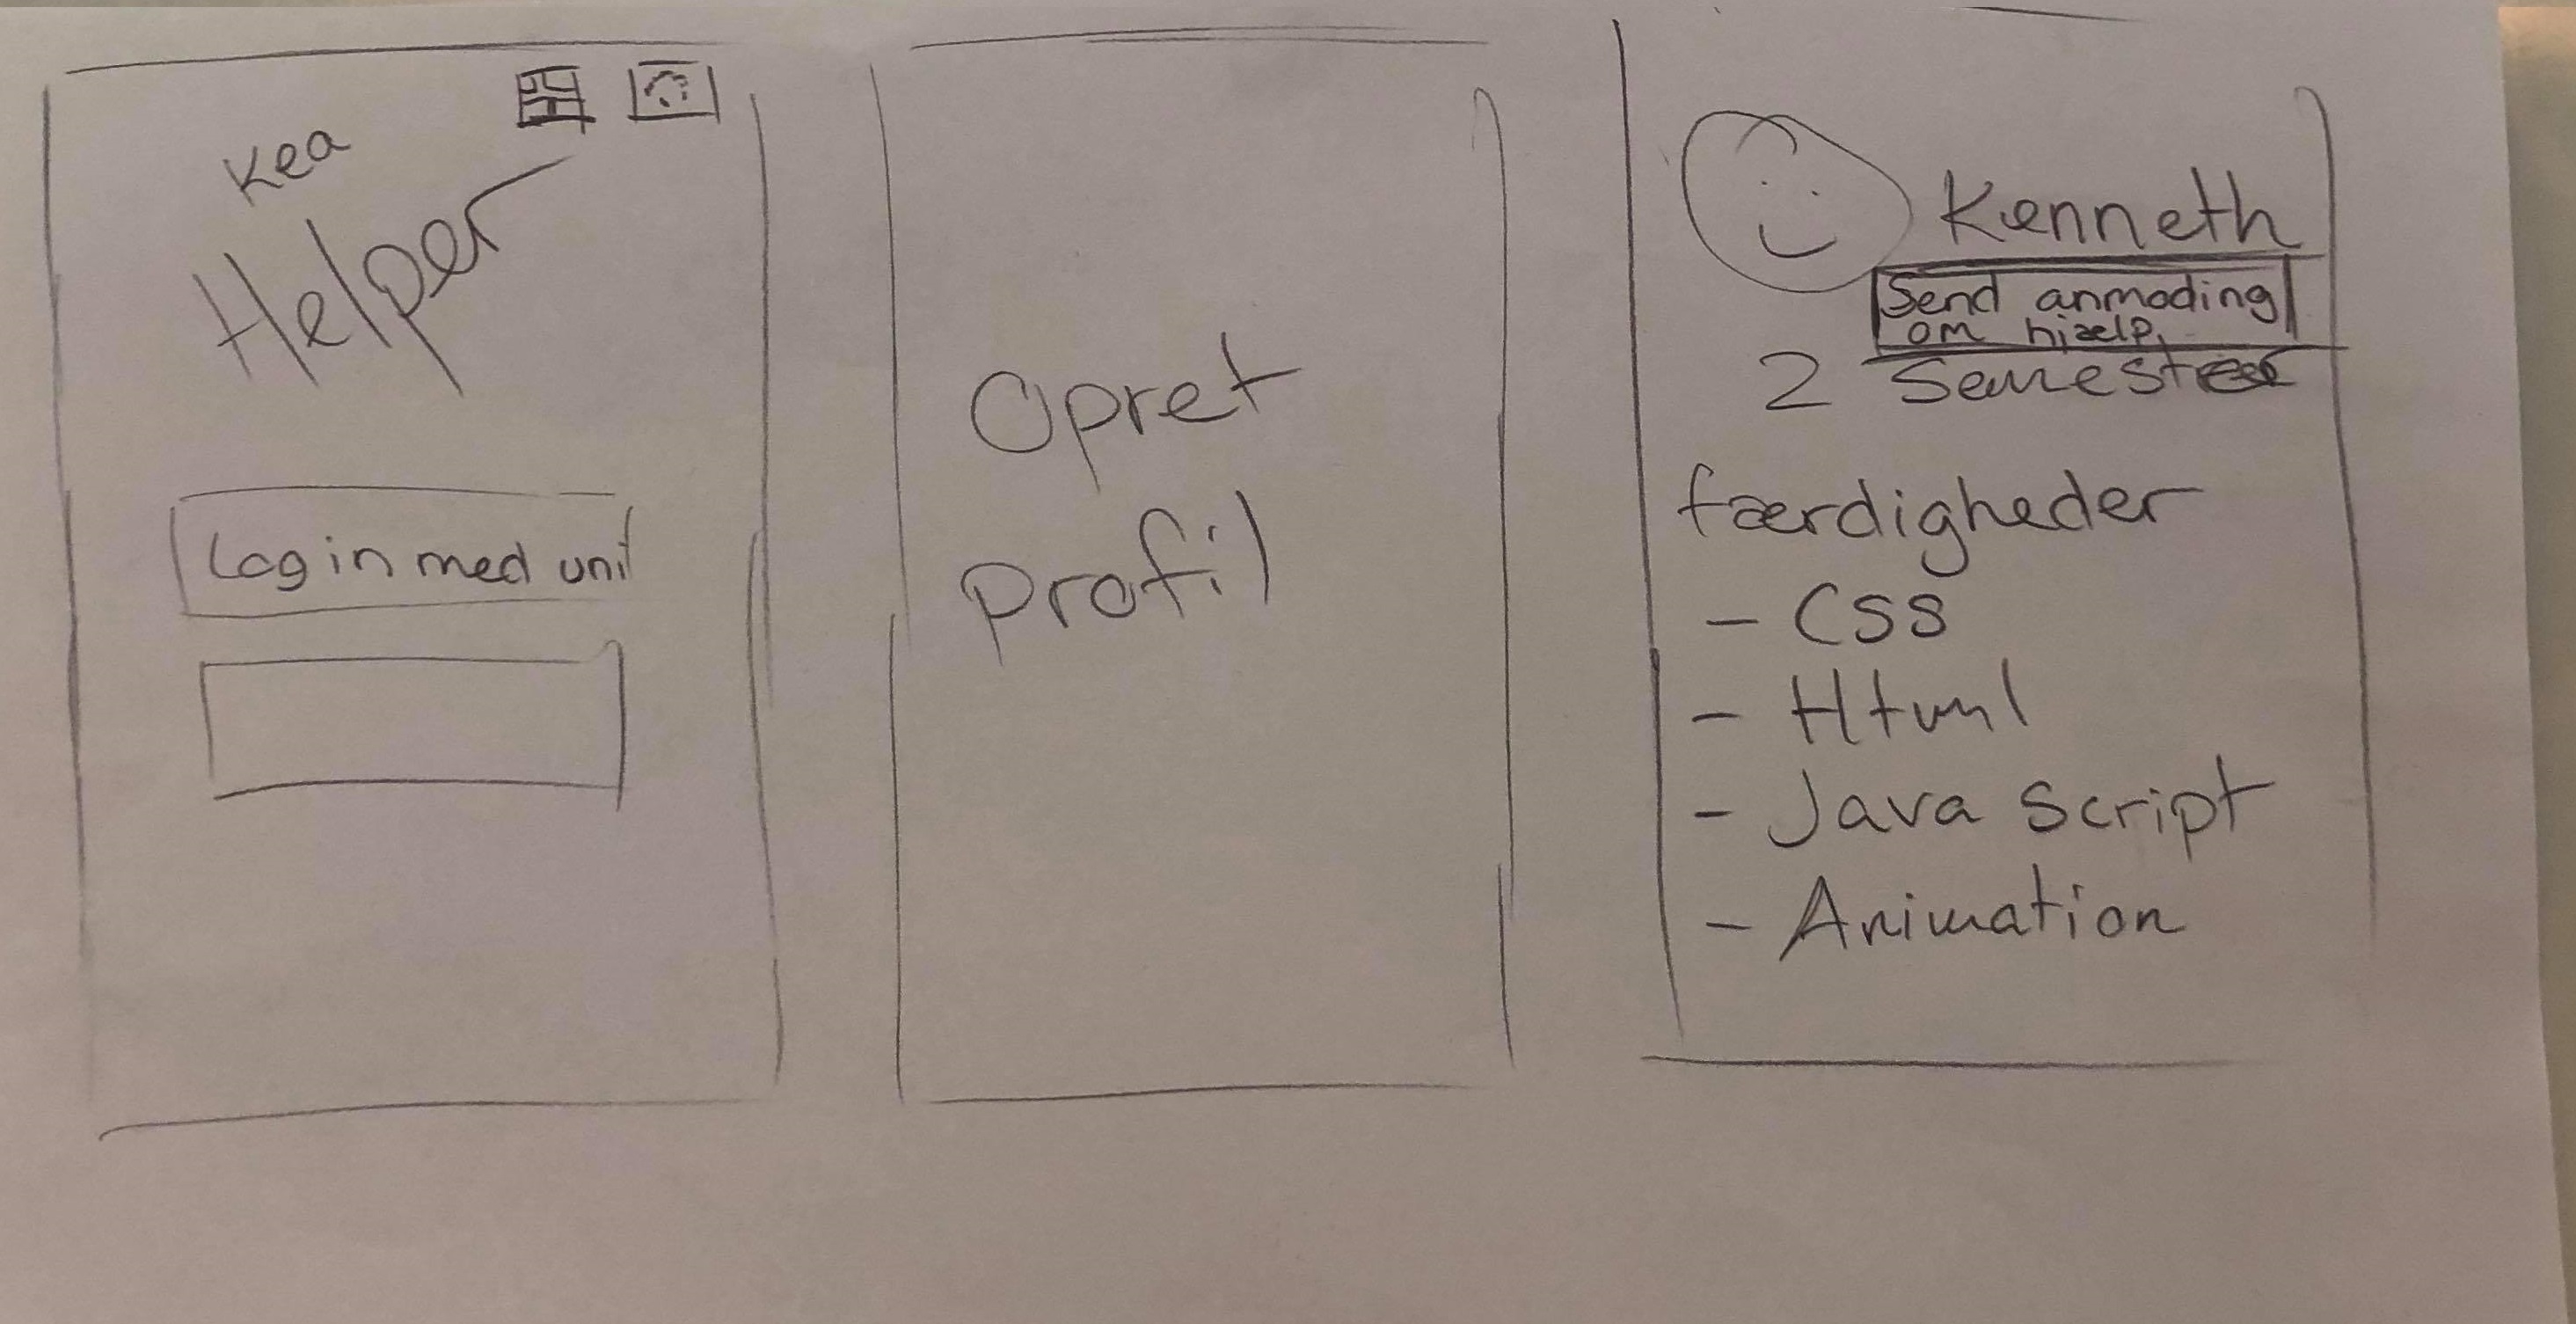 Kea
Helper
Log in med uni
Opret
profil
Kenneth
Send anmoding
om hjælp
2 Semester
færdigheder
- CSS
- Html
- Java Script
- Animation